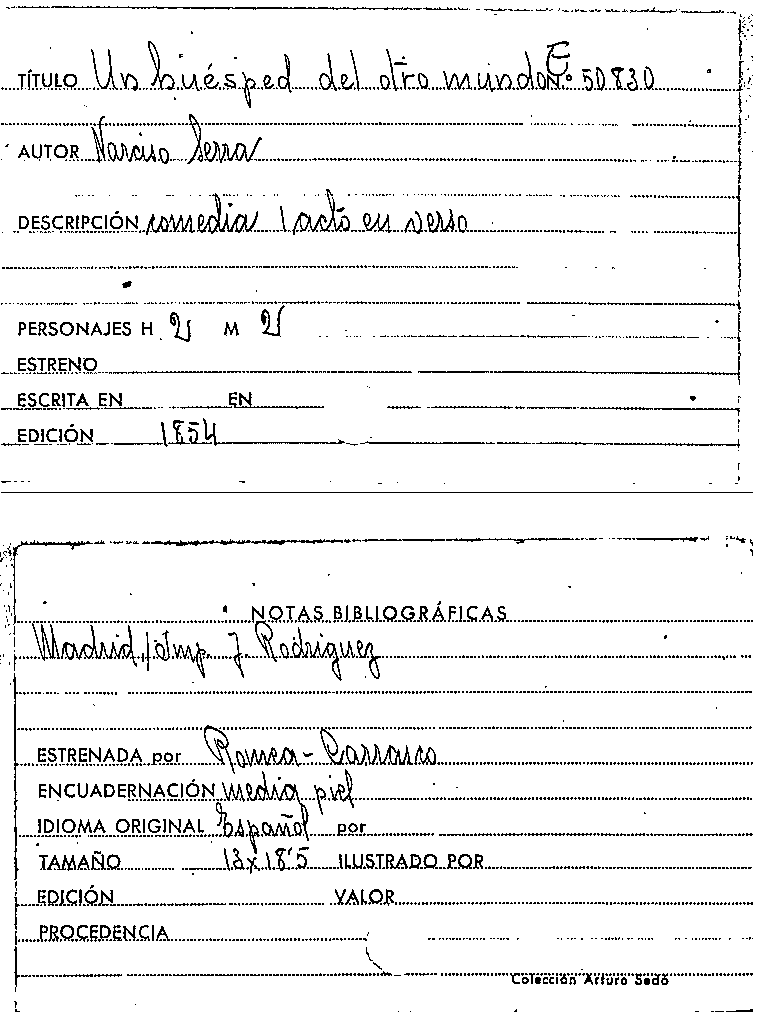 TÍTULO Un huésped del otro mundo Nº 50830
AUTOR Narciso Serra
DESCRIPCIÓN comedia 1 acto en verso
PERSONAJES H 2 M 2
ESTRENO
ESCRITA EN EN
EDICIÓN 1854
NOTAS BIBLIOGRÁFICAS
Madrid, Imp. J. Rodriguez
ESTRENADA por Romea-Carrasco
ENCUADERNACIÓN media piel
IDIOMA ORIGINAL Español por
TAMAÑO 13x18'5 ILUSTRADO POR
EDICIÓN VALOR
PROCEDENCIA
Colección Arturo Sedó